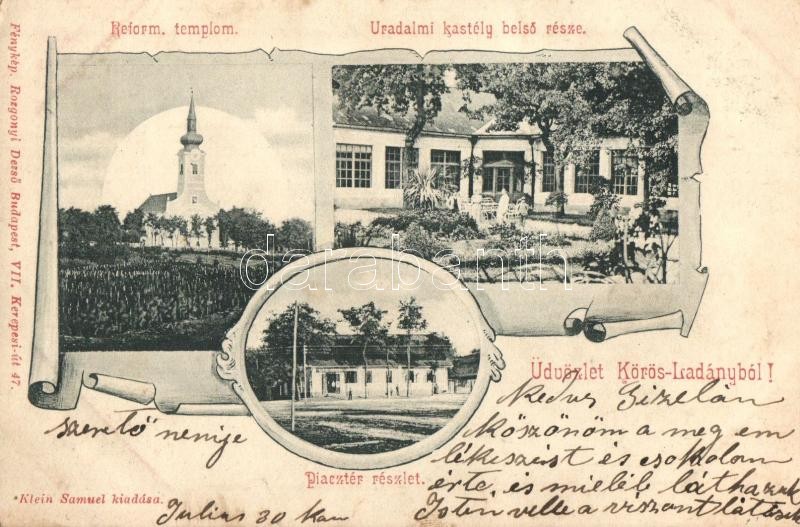 Reform. templom.
Uradalmi kastély belső része.
Fénykép. Rozgonyi Dezső Budapest, VII. Kerepesi-út 47.
darabanth
Üdvözlet Körös-Ladányból!
Kedves Gizelán
Köszönöm a meg em
lékezést és csokolom
érte, és mielőb láthazuk
Isten velle a viszont látásik
szerető nenije
Piacztér részlet.
Klein Samuel kiadása.
Julius 30 kan